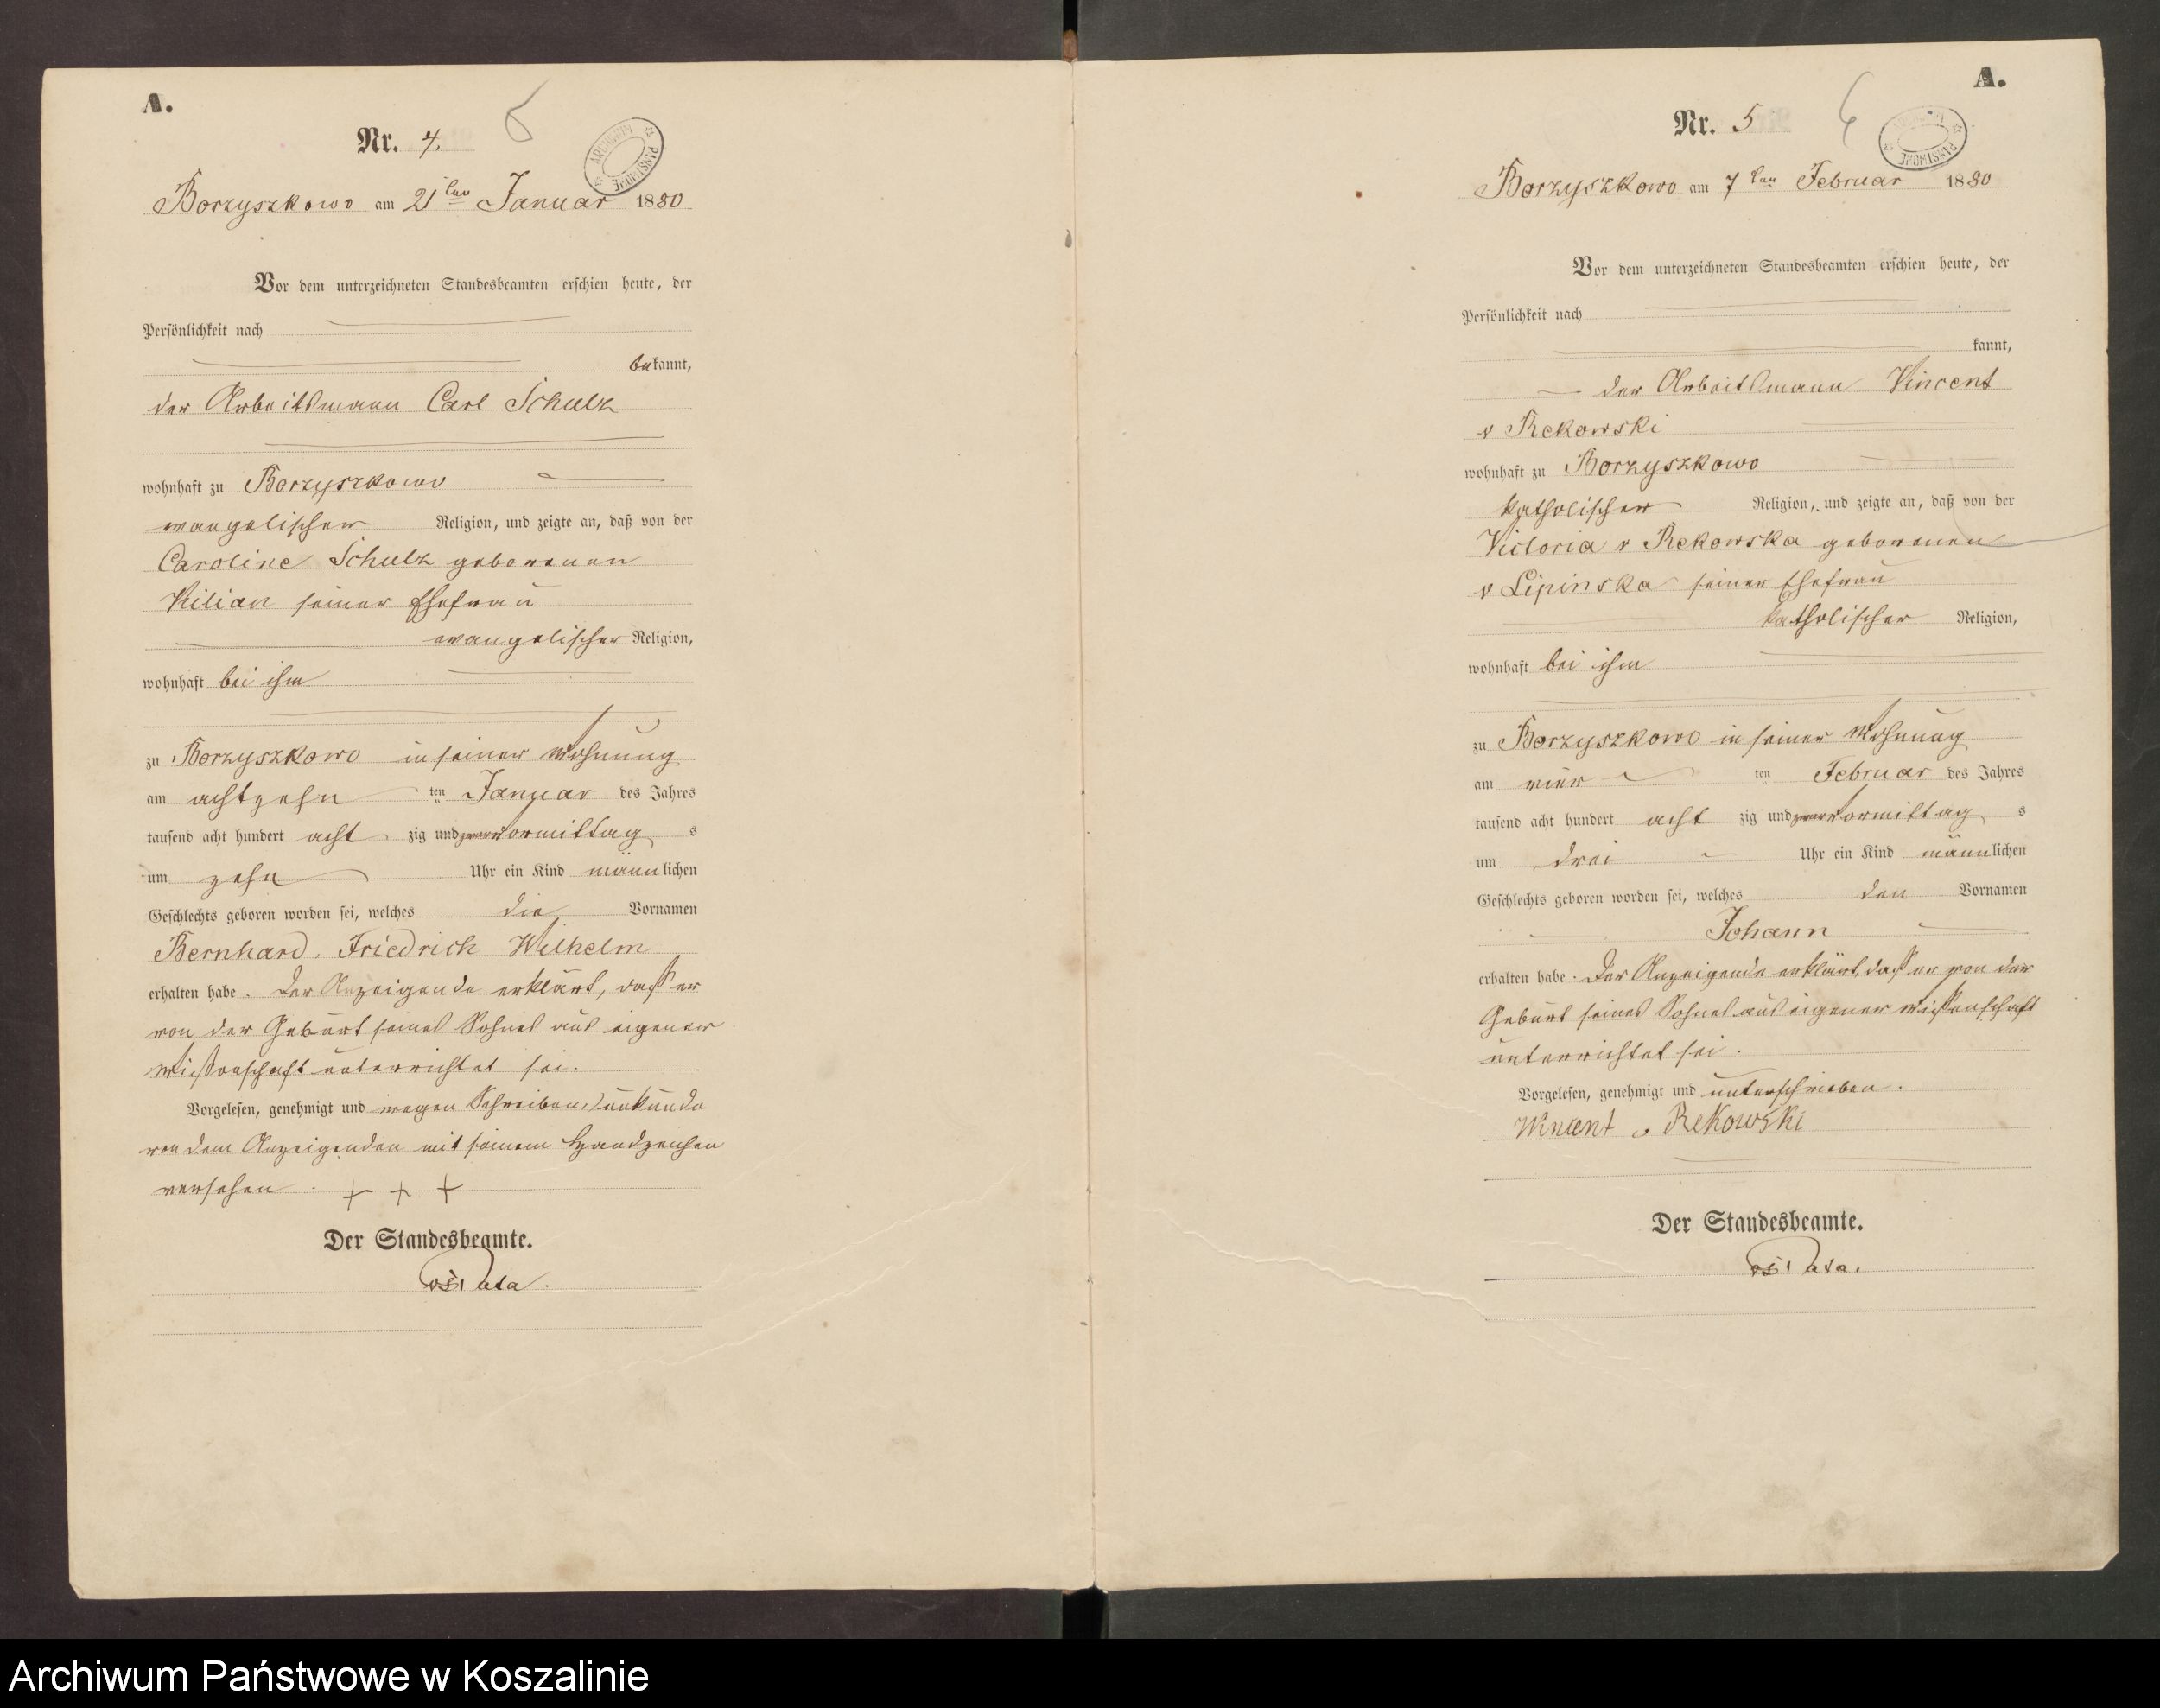 A.
Nr. 4.
6
ARCHIWUM PAŃSTWOWE
Borzyszkowo am 21ten Januar 1880
Vor dem unterzeichneten Standesbeamten erschien heute, der
Persönlichkeit nach
bekannt,
der Arbeitsmann Carl Schulz
wohnhaft zu Borzyszkowo
evangelischer Religion, und zeigte an, daß von der
Caroline Schulz geborenen
Kilian seiner Ehefrau
evangelischer Religion,
wohnhaft bei ihm
zu Borzyszkowo in seiner Wohnung
am achtzehn ten Januar des Jahres
tausend acht hundert acht zig und Vormittag s
um zehn Uhr ein Kind männlichen
Geschlechts geboren worden sei, welches die Vornamen
Bernhard, Friedrich Wilhelm
erhalten habe. Der Anzeigende erklärt, daß er
von der Geburt seines Sohnes aus eigener
Wissenschaft unterrichtet sei.
Vorgelesen, genehmigt und wegen Schreibensunkunde
von dem Anzeigenden mit seinem Handzeichen
versehen. + + +
Der Standesbeamte.
A.
Nr. 5
Borzyszkowo am 7ten Februar 1880
Vor dem unterzeichneten Standesbeamten erschien heute, der
Persönlichkeit nach
kannt,
der Arbeitsmann Vincent
v Rekowski
wohnhaft zu Borzyszkowo
katholischer Religion, und zeigte an, daß von der
Victoria v Rekowska geborenen
v Lipinska seiner Ehefrau
katholischer Religion,
wohnhaft bei ihm
zu Borzyszkowo in seiner Wohnung
am vier ten Februar des Jahres
tausend acht hundert acht zig und Vormittag s
um drei Uhr ein Kind männlichen
Geschlechts geboren worden sei, welches den Vornamen
Johann
erhalten habe. Der Anzeigende erklärt, daß er von der
Geburt seines Sohnes aus eigener Wissenschaft
unterrichtet sei.
Vorgelesen, genehmigt und unterschrieben.
Wincent v Rekowski
Der Standesbeamte.
Archiwum Państwowe w Koszalinie